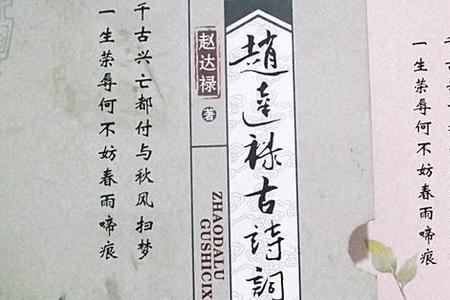 千古兴亡都付与秋风扫梦
一生荣辱何不妨春雨啼痕
赵达禄
著
ZHAODALU
GUSHICIX
趙達禄古詩詞
一生荣辱何不妨春雨啼痕